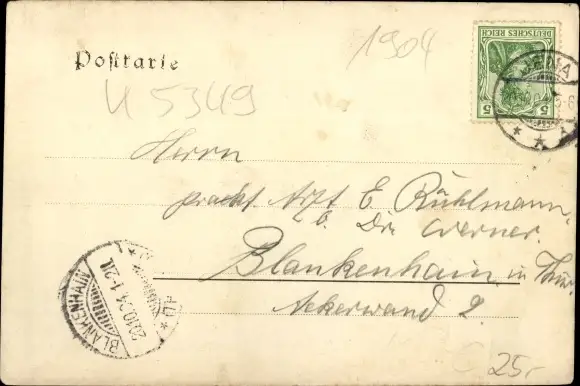 1904
Postkarte
U 5349
DEUTSCHES REICH
5 5
JENA
Herrn
prakt. Arzt E. Rühlmann.
b. Dr. Werner.
Blankenhain in Thür.
Ackerwand 2.
BLANKENHAIN
25.-